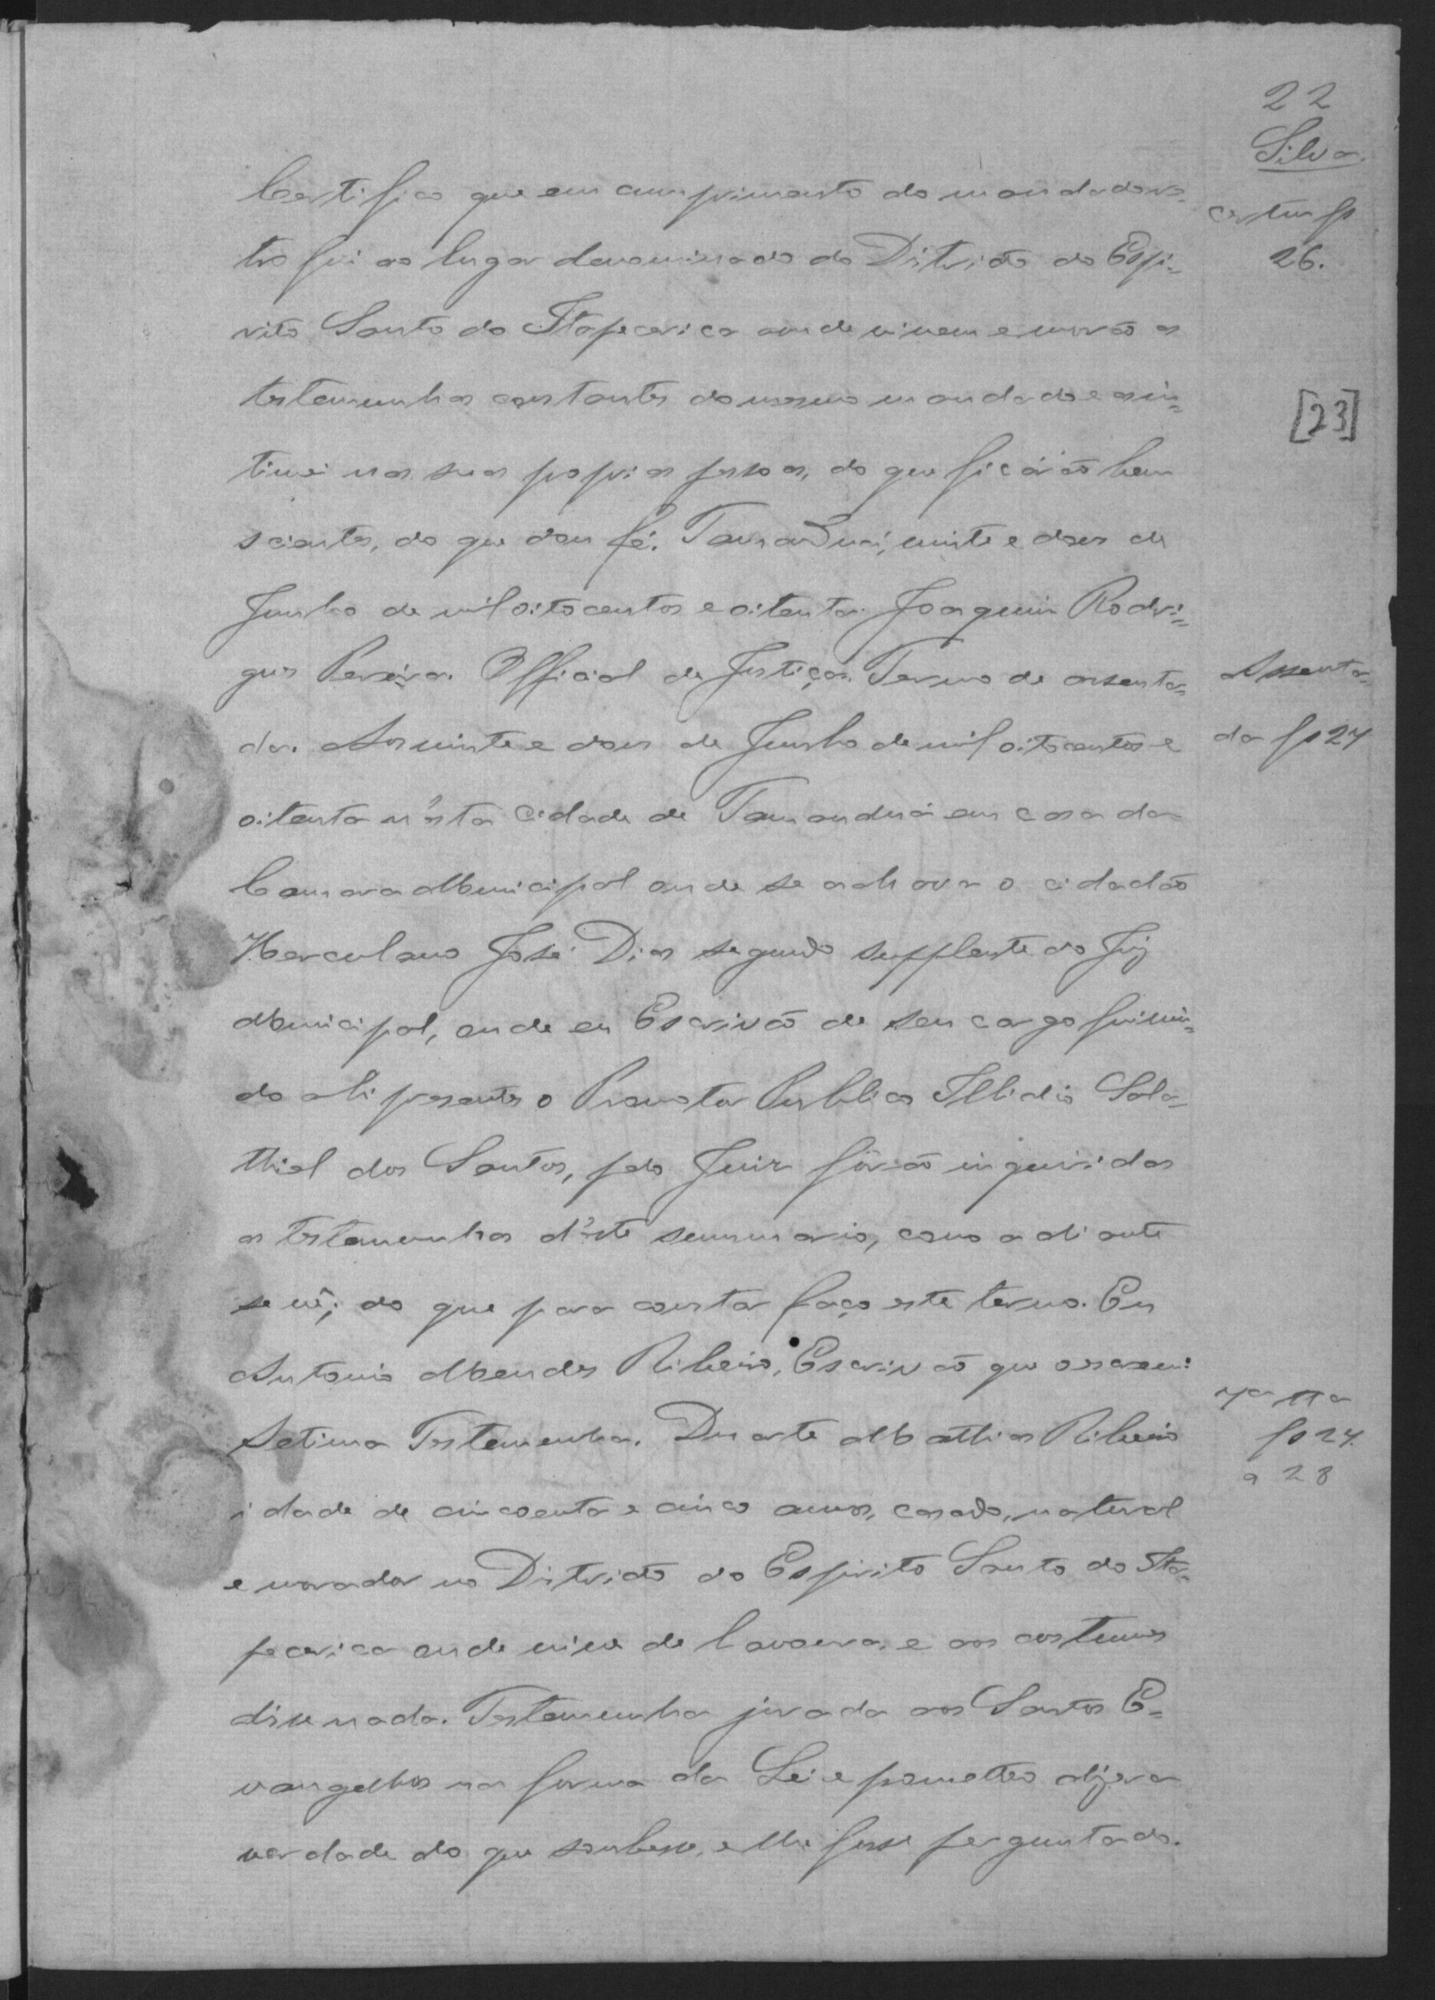 22
Silva.
Certifico que em cumprimento do mandado re-
certm fs
tro fui ao lugar denominado do Ditricto do Espi-
26.
rito Santo do Itapecerica onde vivem e morão as
testemunhas constantes do mesmo mandado e as in-
[23]
timei nas suas propias pessoas, do que ficárão bem
scientes, do que dou fé. Tamanduá, vinte e dous de
Junho de mil oitocentos e oitenta. Joaquim Rodri-
gues Pereira. Official de Justiça. Termo de assenta-
Assenta-
da. Aos vinte e dous de Junho de mil oitocentos e
da fs 27
oitenta n'esta cidade de Tamanduá em casa da
Camara Municipal onde se achava o cidadão
Herculano José Dias segundo supplente do Juiz
Municipal, onde eu Escrivão de seu cargo fui vin-
do ahi presente o Promotor Publico Illidio Sala-
thiel dos Santos, pelo Juiz fôrão inqueridas
as testemunhas d'este summario, como adiante
se vê; do que para constar faço este termo. Eu
Antonio Mendes Ribeiro, Escrivão que o escrevi.
7ª ttª
Setima Testemunha. Duarte Mathias Ribeiro
fs 27.
a 28
idade de cincoenta e cinco annos, casado, natural
e morador no Ditricto do Espirito Santo do Ita-
pecerica onde vive de lavoura, e aos costumes
disse nada. Testemunha jurada aos Santos E-
vangelhos na forma da Lei e prometteo dizer a
verdade do que soubesse, e lhe fosse perguntado.